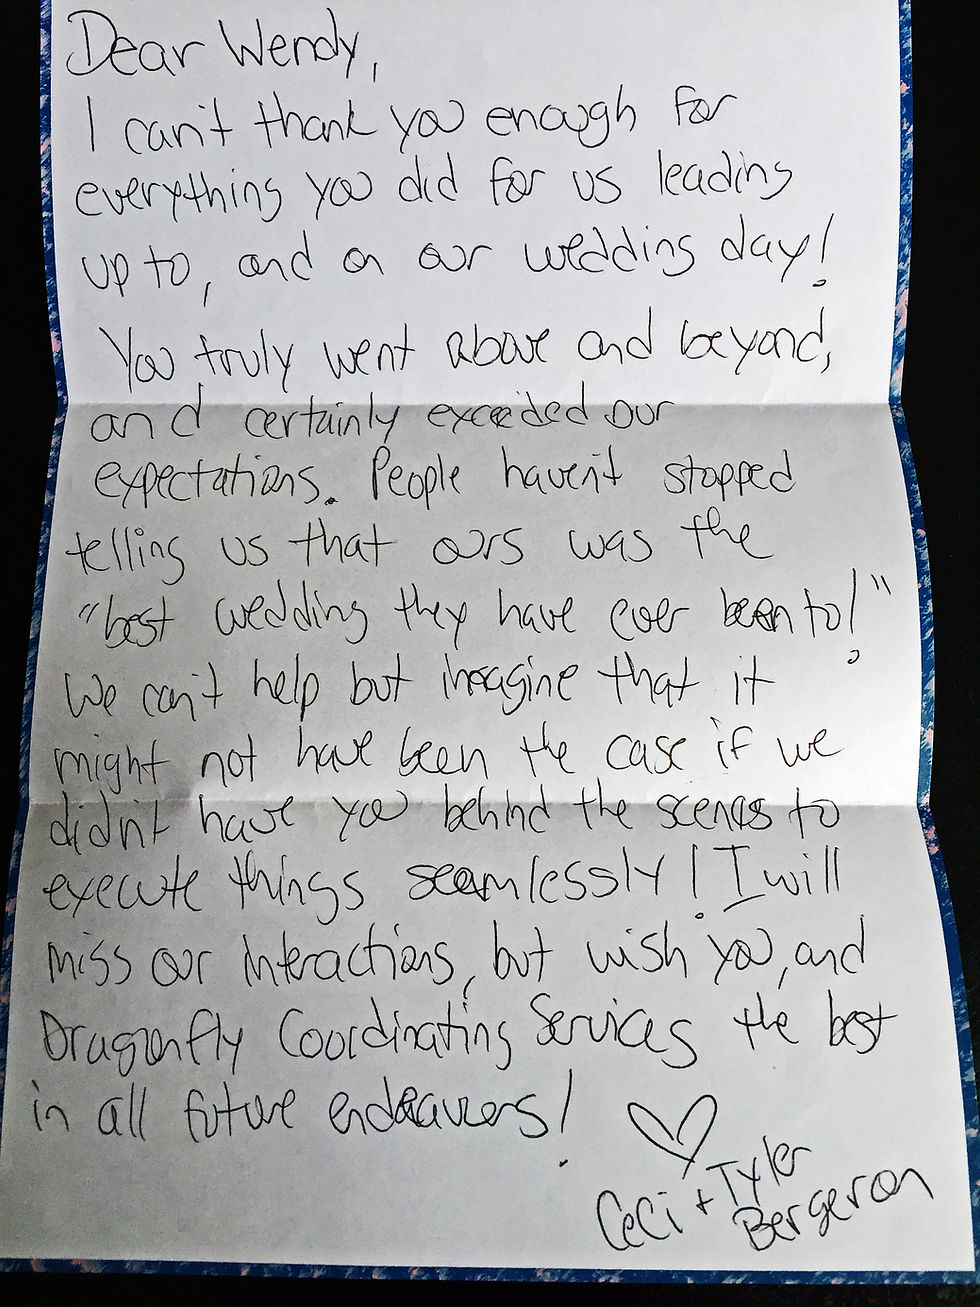 Dear Wendy,
I can't thank you enough for
everything you did for us leading
up to, and on our wedding day!
You truly went above and beyond,
and certainly exceeded our
expectations. People haven't stopped
telling us that ours was the
"best wedding they have ever been to!"
We can't help but imagine that it
might not have been the case if we
didn't have you behind the scenes to
execute things seamlessly! I will
miss our interactions, but wish you, and
Dragonfly Coordinating Services the best
in all future endeavers!
Ceci + Tyler
Bergeron